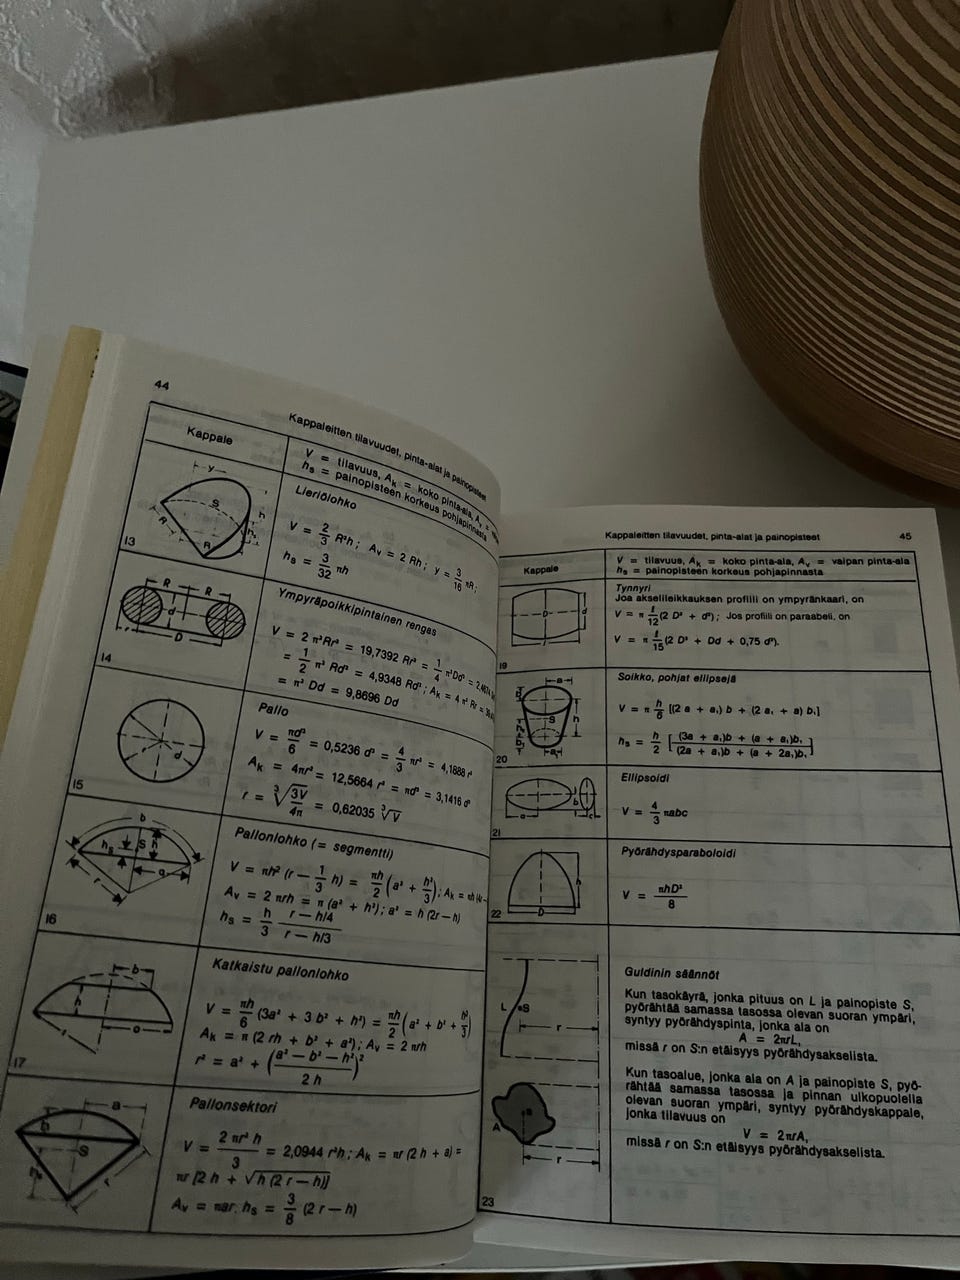 44
Kappaleitten tilavuudet, pinta-alat ja painopisteet
Kappale
V = tilavuus, Aₖ = koko pinta-ala, Aᵥ =
hₛ = painopisteen korkeus pohjapinnasta
13
Lieriölohko
V = 2/3 R²h; Aᵥ = 2 Rh; y = 3/16 πR;
hₛ = 3/32 πh
14
Ympyräpoikkipintainen rengas
V = 2 π²Rr² = 19,7392 Rr² = 1/4 π²Dd² =
= 1/2 π² Rd² = 4,9348 Rd²; Aₖ = 4 π² Rr =
= π² Dd = 9,8696 Dd
15
Pallo
V = πd³/6 = 0,5236 d³ = 4/3 πr³ = 4,1888 r³
Aₖ = 4πr² = 12,5664 r² = πd² = 3,1416 d²
r = ∛(3V/4π) = 0,62035 ∛V
16
Pallonlohko (= segmentti)
V = πh² (r − 1/3 h) = πh/2 (a² + h²/3); Aₖ = πh (4r −
Aᵥ = 2 πrh = π (a² + h²); a² = h (2r − h)
hₛ = h/3 r − h/4 / r − h/3
17
Katkaistu pallonlohko
V = πh/6 (3a² + 3 b² + h²) = πh/2 (a² + b² + h²/3)
Aₖ = π (2 rh + b² + a²); Aᵥ = 2 πrh
r² = a² + (a² − b² − h² / 2 h)²
Pallonsektori
V = 2 πr² h/3 = 2,0944 r²h; Aₖ = πr (2 h + a) =
πr [2 h + √h (2 r − h)]
Aᵥ = πar; hₛ = 3/8 (2 r − h)
Kappaleitten tilavuudet, pinta-alat ja painopisteet 45
Kappale
V = tilavuus, Aₖ = koko pinta-ala, Aᵥ = vaipan pinta-ala
hₛ = painopisteen korkeus pohjapinnasta
19
Tynnyri
Jos akselileikkauksen profiili on ympyränkaari, on
V = π l/12 (2 D² + d²); Jos profiili on paraabeli, on
V = π l/15 (2 D² + Dd + 0,75 d²).
20
Soikko, pohjat ellipsejä
V = π h/6 [(2 a + a₁) b + (2 a₁ + a) b₁]
hₛ = h/2 [(3a + a₁)b + (a + a₁)b₁ / (2a + a₁)b + (a + 2a₁)b₁]
21
Ellipsoidi
V = 4/3 πabc
22
Pyörähdysparaboloidi
V = πhD²/8
23
Guldinin säännöt
Kun tasokäyrä, jonka pituus on L ja painopiste S,
pyörähtää samassa tasossa olevan suoran ympäri,
syntyy pyörähdyspinta, jonka ala on
A = 2πrL,
missä r on S:n etäisyys pyörähdysakselista.
Kun tasoalue, jonka ala on A ja painopiste S, pyö-
rähtää samassa tasossa ja pinnan ulkopuolella
olevan suoran ympäri, syntyy pyörähdyskappale,
jonka tilavuus on
V = 2πrA,
missä r on S:n etäisyys pyörähdysakselista.